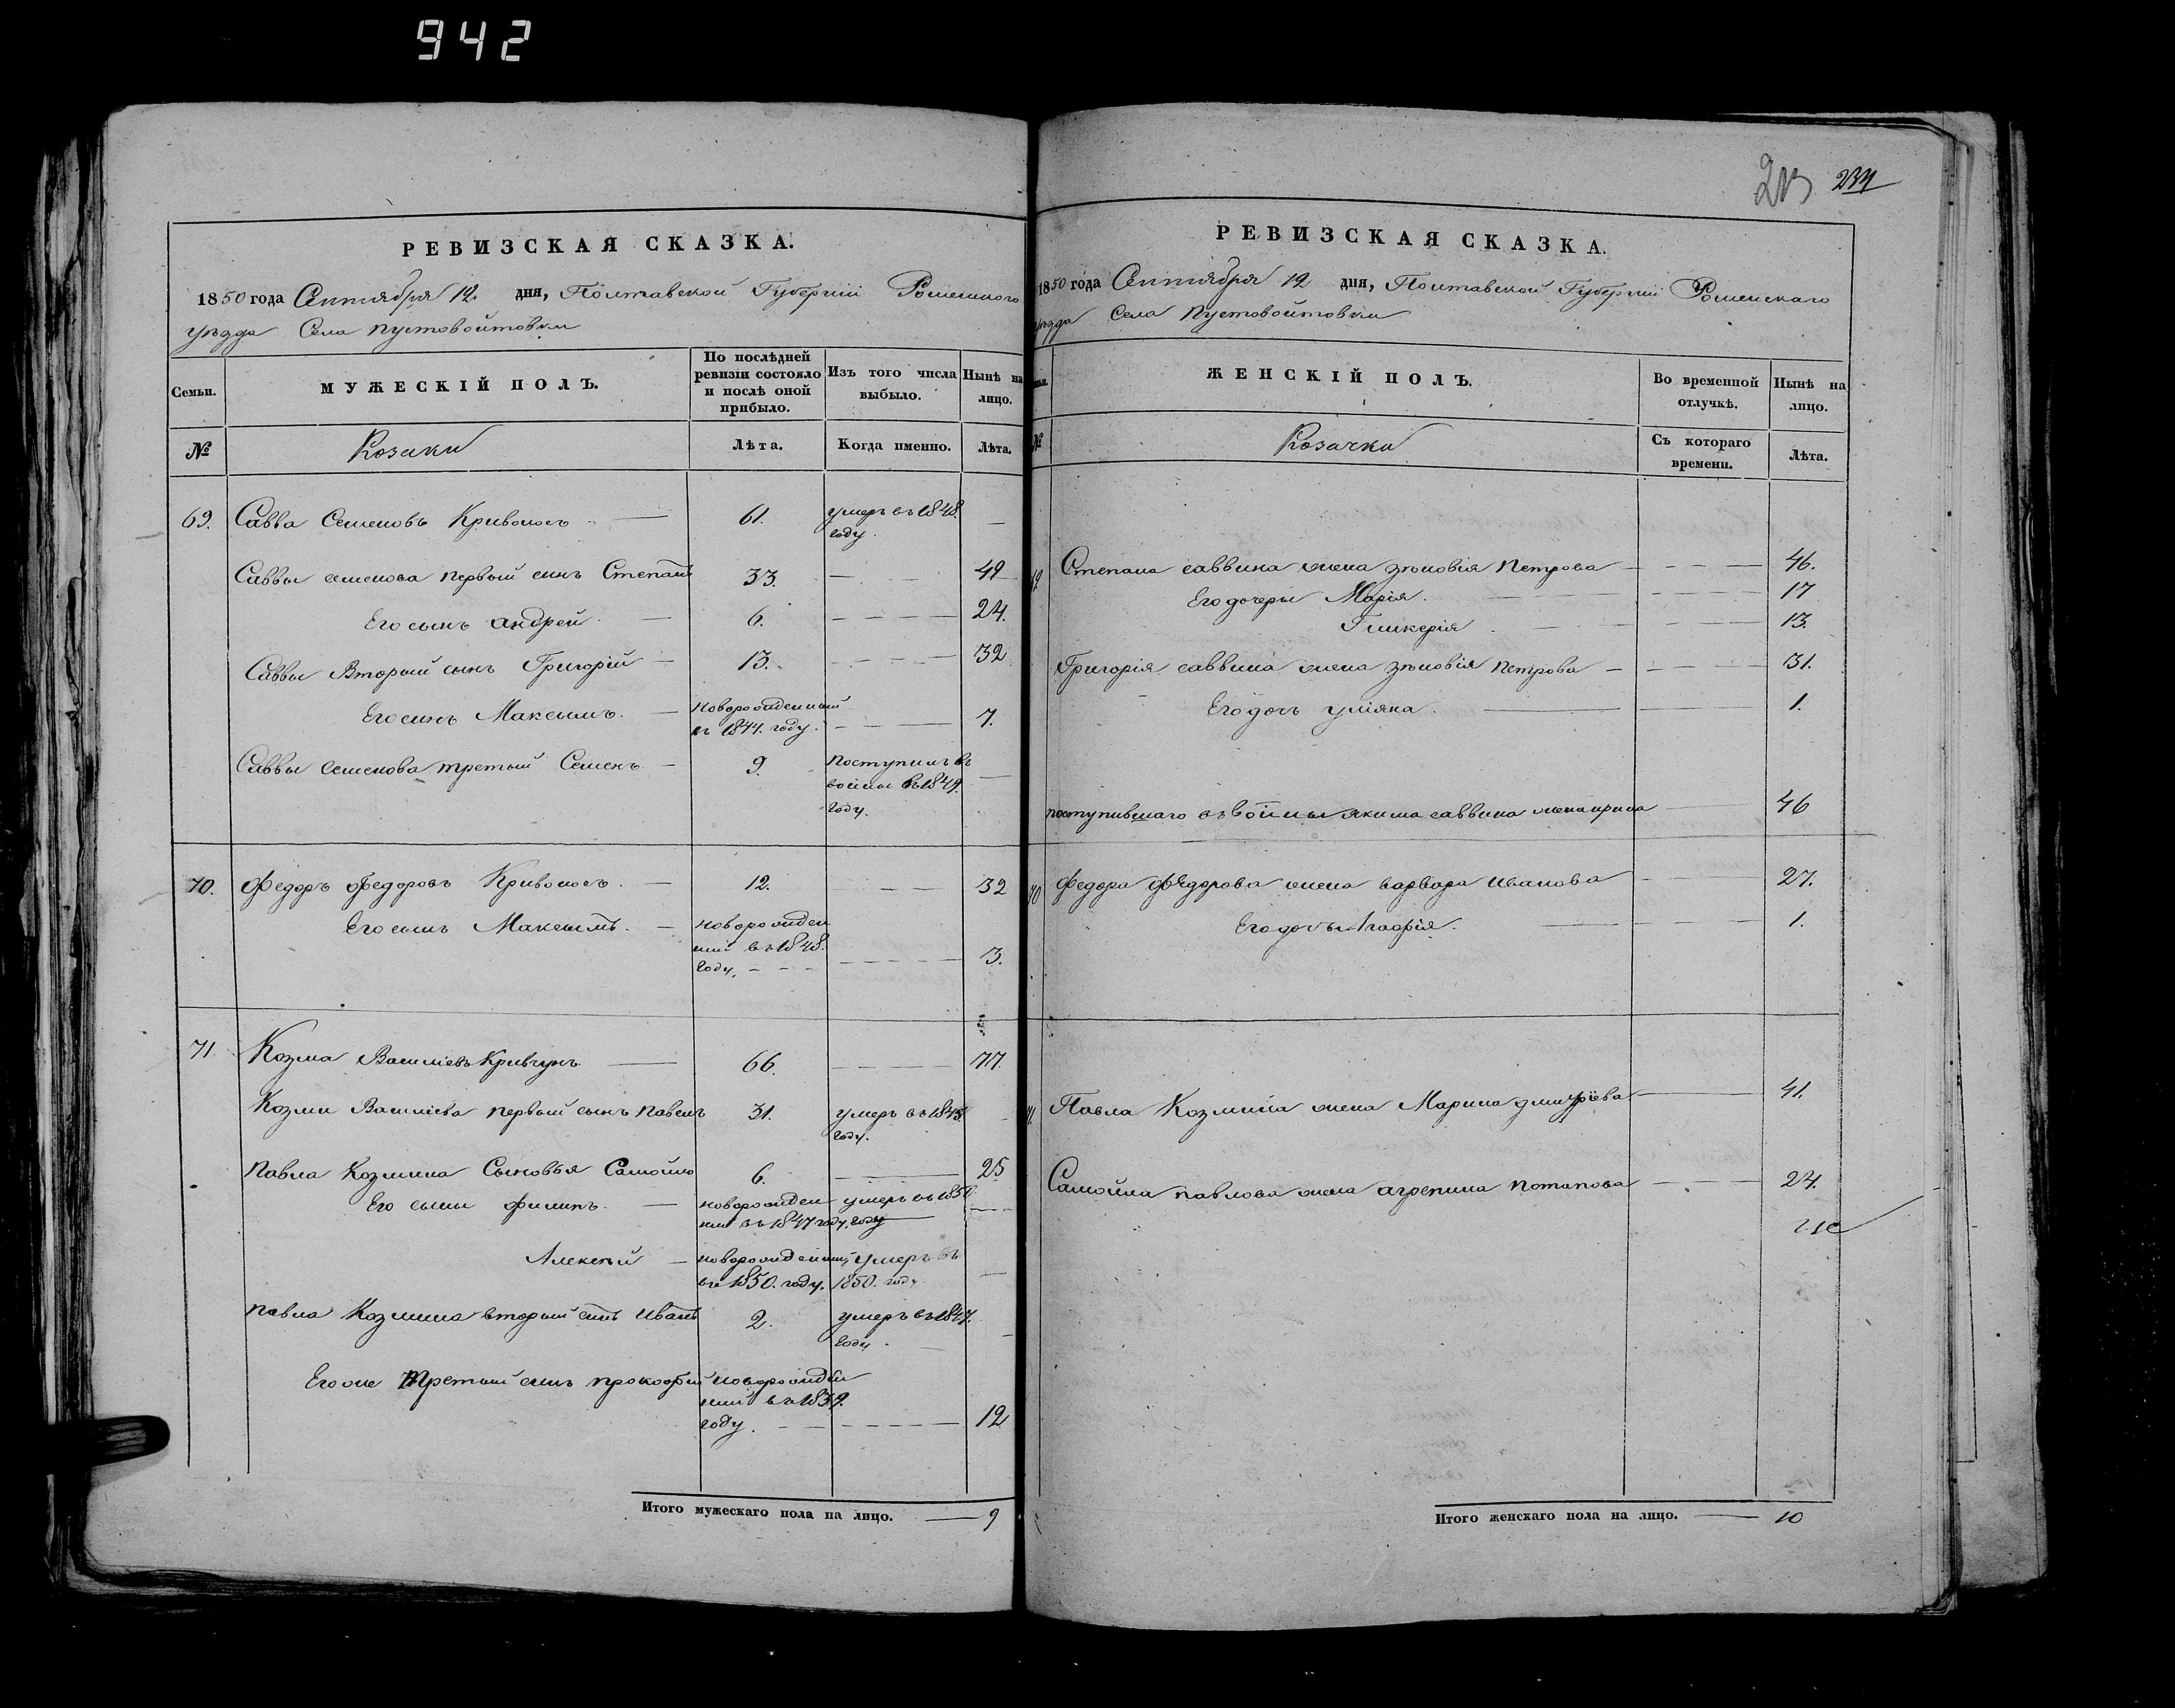 942
213 234
РЕВИЗСКАЯ СКАЗКА.
1850 года Сентября 12. дня, Полтавской Губернии Роменского
уезда Села Пустовойтовки
Семьи. МУЖЕСКІЙ ПОЛЪ. По послѣдней ревизіи состояло и послѣ оной прибыло. Изъ того числа выбыло. Нынѣ на лицо.
№ Козаки Лѣта. Когда именно. Лѣта.
69. Савва Семеновъ Кривоносъ 61. умеръ въ 1848.
году.
Саввы семенова первый синъ Степанъ 33. 49
Его сынъ андрей 6. 24.
Саввы Вторый сынъ Григорій 13. 32
Его синъ Максимъ. новорожденный
въ 1844. году. 7.
Саввы Семенова третий Семенъ 9. поступилъ въ
войны въ 1849.
году.
70. Федоръ Федоровъ Кривоносъ. 12. 32
Его сынъ Максимъ. новорожден
ний въ 1848.
году. 3.
71 Козма Василіевъ Кривчунъ. 66. 77.
Козми Василіева первый сынъ Павелъ 31. умеръ въ 1843.
году.
Павла Козмина Сыновья Самойло 6. 25
Его сыны Филипъ. новорожден умеръ въ 1850
ний въ 1847 году. году
Алексѣй новорожденний умеръ въ
въ 1850. году. 1850. году
Павла Козмина вторый синъ Иванъ 2. умеръ въ 1847.
году.
Его же Третий синъ прокофий новорожден
ний въ 1839.
году. 12
Итого мужескаго пола на лицо. 9
РЕВИЗСКАЯ СКАЗКА.
1850 года Сентября 12 дня, Полтавской Губерніи Роменскаго
уезда Села Пустовойтовки
ЖЕНСКІЙ ПОЛЪ. Во временной отлучкѣ. Нынѣ на лицо.
№ Козачки Съ котораго времени. Лѣта.
69. Степана саввина жена зѣновія Петрова 46.
Его дочеры Марія. 17
Гликерія 13.
Григорія саввина жена зѣновія Петрова 31.
Его дочъ уліяна. 1.
поступившаго въ войны якима саввина жена ирина 46
70 Федора Федорова жена варвара иванова 27.
Его дочъ Агафія. 1.
71. Павла Козмина жена Марина дмитріева 41.
Самойла павлова жена агрепина потапова 24.
Итого женскаго пола на лицо. 10